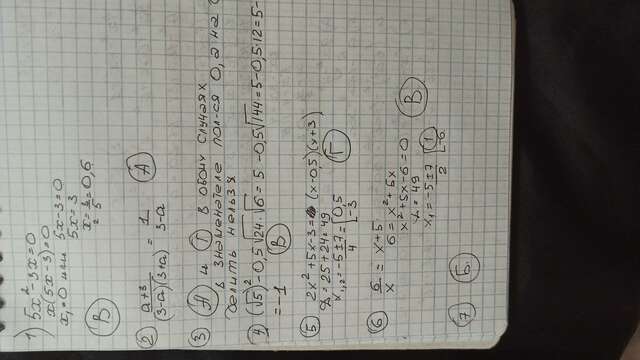 1) 5x²-3x=0
x(5x-3)=0
x₁=0 или 5x-3=0
5x=3
x=3/5=0,6
В
2 a+3/(3-a)(3+a) = 1/3-a А
3 А и Г в обоих случаях
в знаменателе пол-ся 0, а на 0
делить нельзя
4 (√5)²-0,5√24·√6=5-0,5√144=5-0,5·12=5-
=-1 В
5 2x²+5x-3= (x-0,5)(x+3)
D=25+24=49
x₁,₂=-5±7/4=[0,5 -3 Г
6 6/x=x+5
6=x²+5x
x²+5x-6=0
D=49
x₁=-5±7/2 [1 -6 В
7 Б.